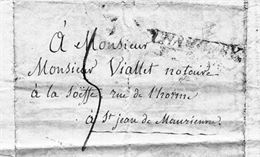 À Monsieur
Monsieur Viallet notaire
à la rue de
à St jean de Maurienne
5